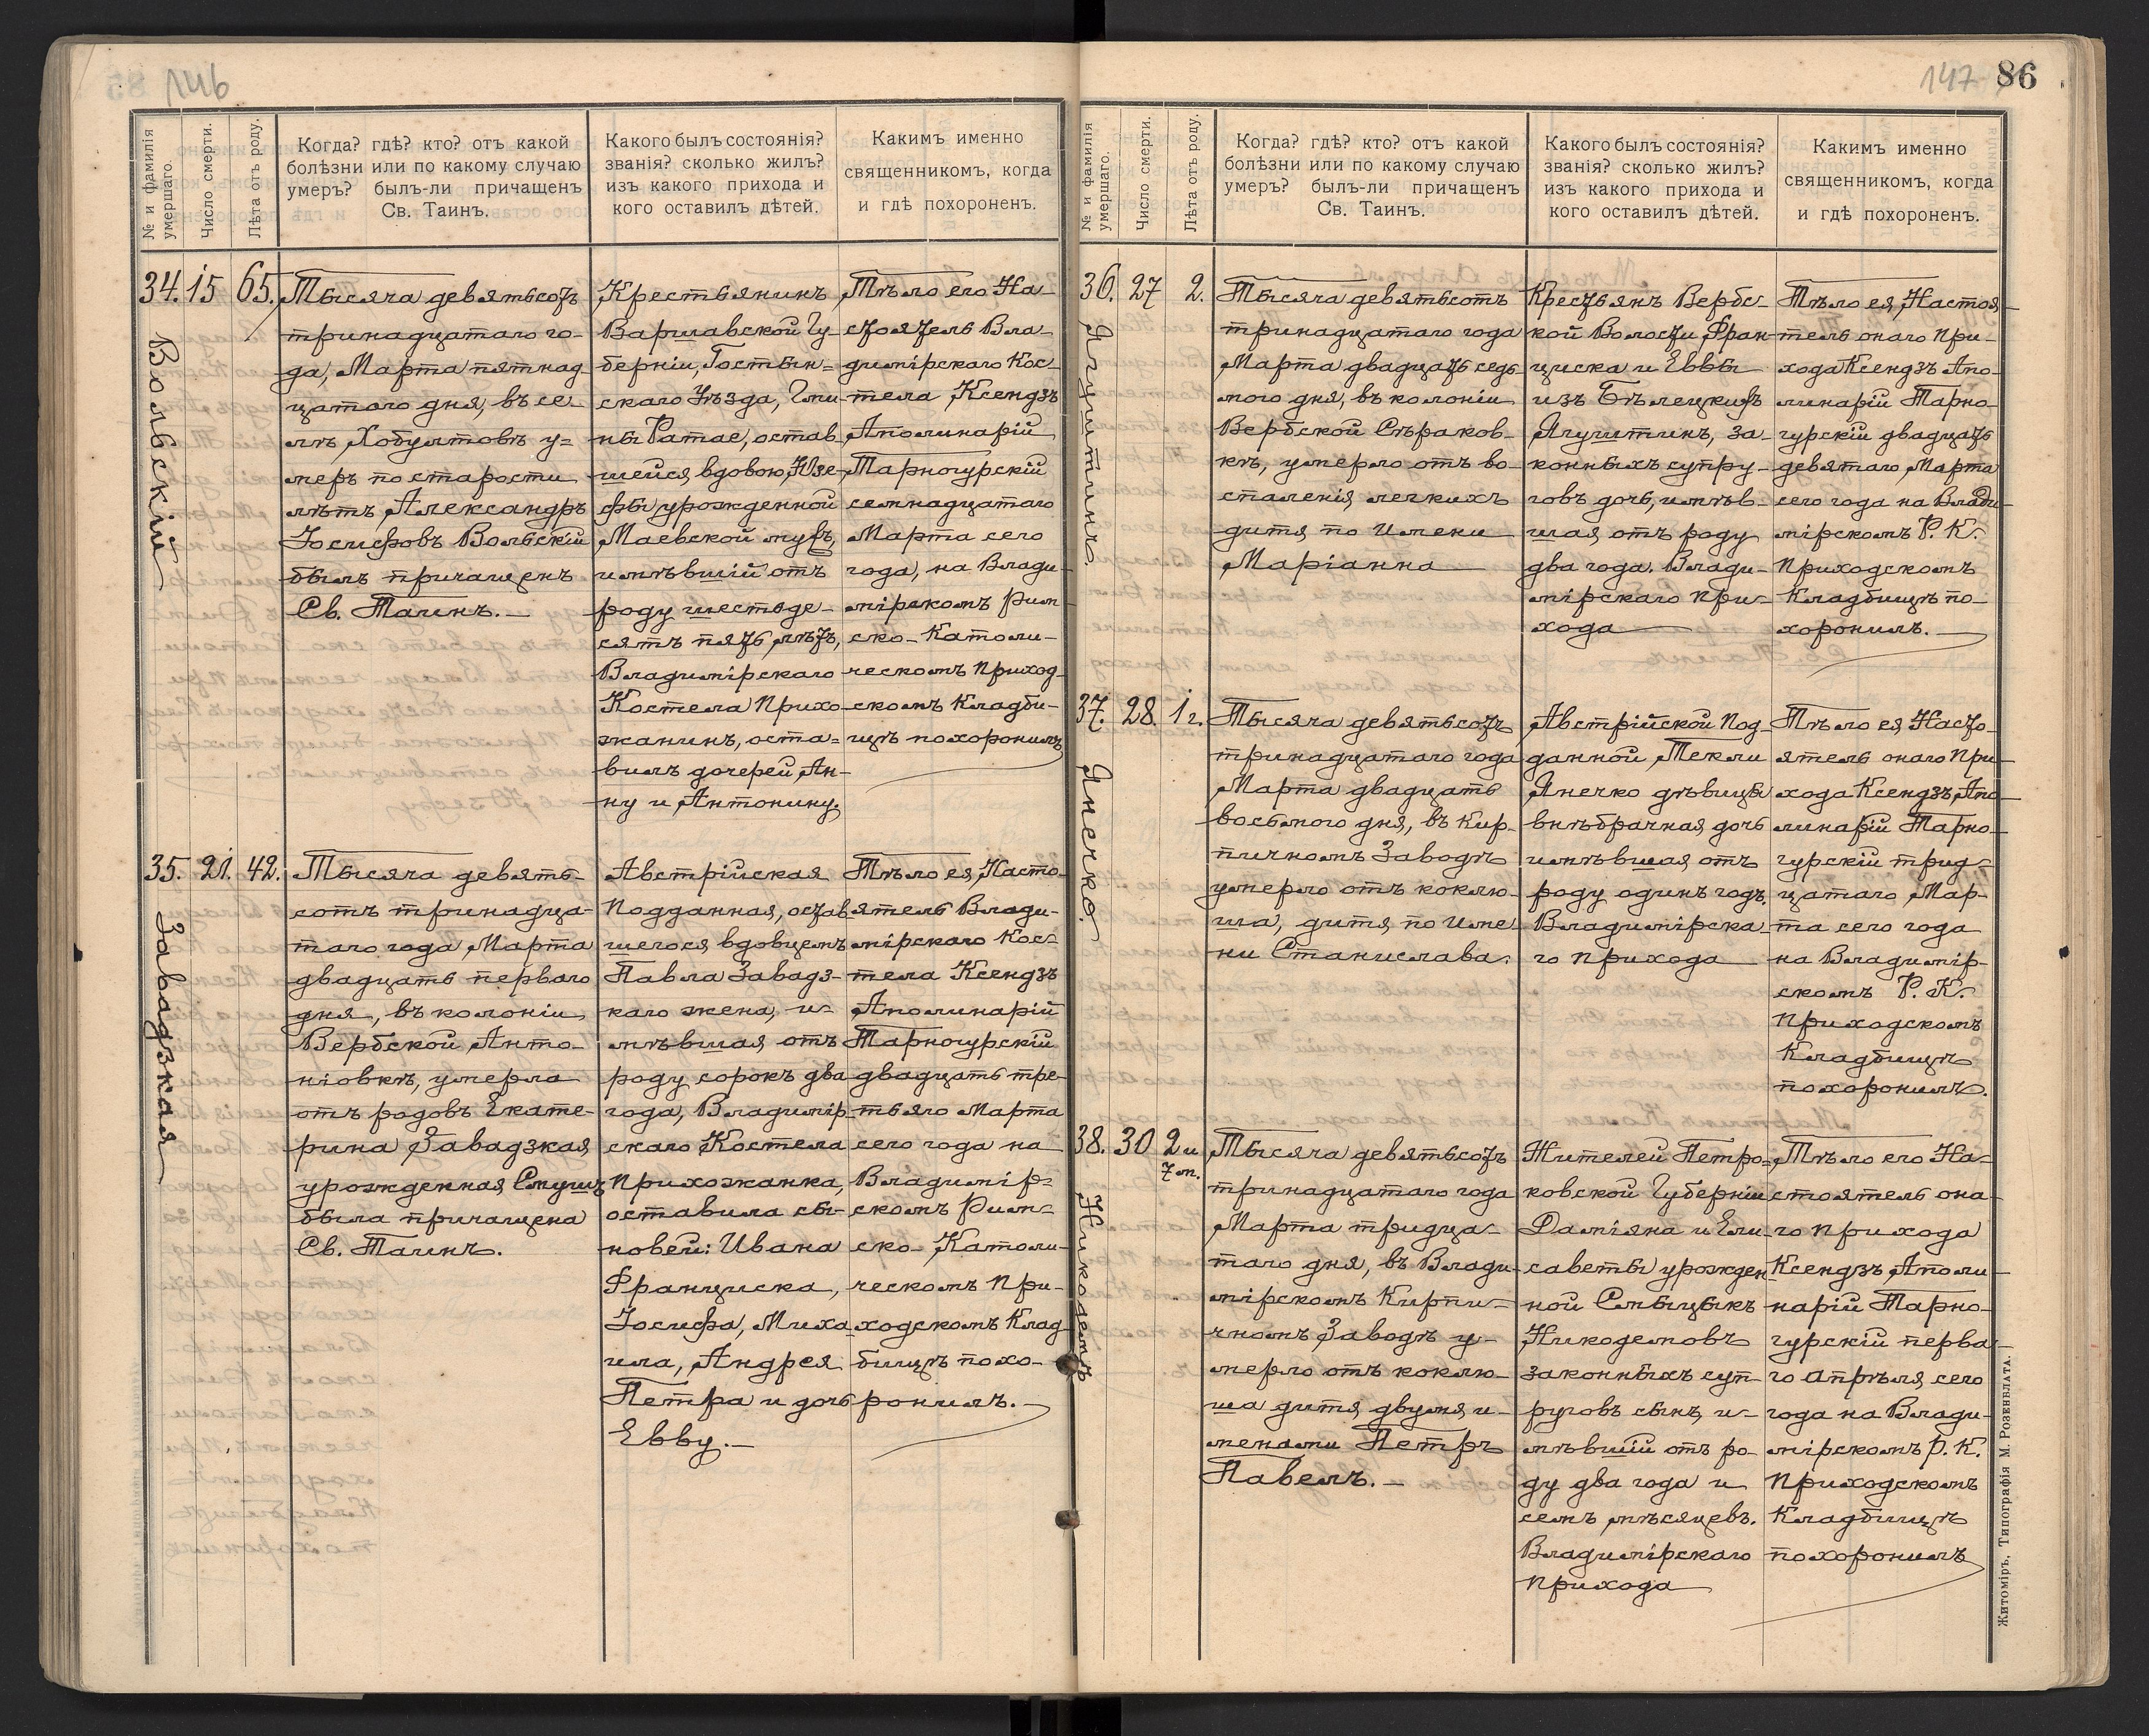 146
№ и фамилія
умершаго.
Число смерти.
Лѣта отъ роду.
Когда? гдѣ? кто? отъ какой
болѣзни или по какому случаю
умеръ? былъ-ли причащенъ
Св. Таинъ.
Какого былъ состоянія?
званія? сколько жилъ?
изъ какого прихода и
кого оставилъ дѣтей.
Какимъ именно
священникомъ, когда
и гдѣ похороненъ.
34. 15 65.
Вольскій
Тысяча девятьсотъ
тринадцатаго го-
да, Марта пятнад
цатаго дня, въ се-
лѣ Хобултовѣ у=
меръ по старости
лѣтъ, Александръ
Іосифовъ Вольскій
былъ причащенъ
Св. Таинъ.—
Крестьянинъ
Варшавской Гу-
берніи, Гостын=
скаго Уѣзда, Гми-
ны Ратае, остав
шейся вдовою, Юзе-
фы урожденной
Маевской мужъ,
имѣвшій отъ
роду шестьде-
сятъ пять лѣтъ,
Владимірскаго
Костела Прихо-
жанинъ, оста=
вилъ дочерей, Ан-
ну и Антонину.
Тѣло его На-
стоятель Вла
димірскаго Кос-
тела Ксендзъ
Аполинарій
Тарногурскій
семнадцатаго
Марта сего
года, на Влади-
мірскомъ Рим-
ско-Католи-
ческомъ приход-
скомъ кладби-
щѣ похоронилъ
35. 21. 42.
Завадзкая
Тысяча девять-
сотъ тринадца-
таго года Марта
двадцать перваго
дня, въ колоніи
Вербской Анто-
ніовкѣ, умерла
отъ родовъ Екате-
рина Завадзкая
урожденная Смушъ
была причащена
Св. Таинъ.
Австрійская
Подданная, остав
шегося вдовцемъ
Павла Завадз-
каго жена, и-
мѣвшая отъ
роду сорокъ два
года, Владимір-
скаго Костела
прихожанка,
оставила сы-
новей: Ивана
Франциска,
Іосифа, Миха-
ила, Андрея
Петра и дочь
Евву.—
Тѣло ея, Насто-
ятель Влади-
мірскаго Кос-
тела Ксендзъ
Аполинарій
Тарногурскій
двадцать тре-
тьяго Марта
сего года на
Владимір-
скомъ Рим-
ско-Католи-
ческомъ при-
ходскомъ Клад-
бищѣ похо-
ронилъ.—
147 86
№ и фамилія
умершаго.
Число смерти.
Лѣта отъ роду.
Когда? гдѣ? кто? отъ какой
болѣзни или по какому случаю
умеръ? былъ-ли причащенъ
Св. Таинъ.
Какого былъ состоянія?
званія? сколько жилъ?
изъ какого прихода и
кого оставилъ дѣтей.
Какимъ именно
священникомъ, когда
и гдѣ похороненъ.
36. 27 2.
Ягуштинъ.
Тысяча девятьсотъ
тринадцатаго года
Марта двадцать седь-
мого дня, въ колоніи
Вербской Сѣраков-
кѣ, умерло отъ во-
спаленія легкихъ
дитя по имени
Маріанна
Крестьянъ Вербс-
кой Волости Фран-
циска и Еввы
изъ Бѣлецкихъ
Ягуштинъ, за-
конныхъ супру-
говъ дочь, имѣв-
шая отъ роду
два года. Влади-
мірскаго при-
хода
Тѣло ея, Настоя-
тель онаго При-
хода Ксендзъ Апо-
линарій Тарно-
гурскій двадцать
девятаго Марта
сего года на Влади-
мірскомъ Р. К.
Приходскомъ
Кладбищѣ по-
хоронилъ.
37. 28. 1 г.
Янечко.
Тысяча девятьсотъ
тринадцатаго года
Марта двадцать
восьмого дня, въ Кир-
пичномъ Заводѣ
умерло отъ коклю-
ша, дитя по име-
ни Станислава.
Австрійской Под-
данной, Текли
Янечко дѣвицы
внѣбрачная дочь
имѣвшая отъ
роду одинъ годъ.
Владимірска-
го прихода
Тѣло ея Насто-
ятель онаго При-
хода Ксендзъ, Апо-
линарій Тарно-
гурскій трид-
цатаго Мар-
та сего года
на Владимір-
скомъ Р. К.
Приходскомъ
Кладбищѣ
похоронилъ.
38. 30 2 и
7 м.
Никодемъ
Тысяча девятьсотъ
тринадцатаго года
Марта тридца-
таго дня, въ Влади-
мірскомъ Кирпи-
чномъ Заводѣ у-
мерло отъ коклю-
ша дитя двумя и-
менами Петръ
Павелъ.—
Жителей Петро-
ковской Губерніи
Даміяна и Ели-
саветы урожден-
ной Смыцыкъ
Никодемовъ
законныхъ суп-
руговъ сынъ, и-
мѣвшій отъ ро-
ду два года и
семь мѣсяцевъ.
Владимірскаго
прихода
Тѣло его На-
стоятель она-
го прихода
Ксендзъ, Аполи-
нарій Тарно-
гурскій перва-
го апрѣля сего
года на Влади-
мірскомъ Р. К.
Приходскомъ
Кладбищѣ
похоронилъ
Житоміръ, Типографія М. Розенблата.